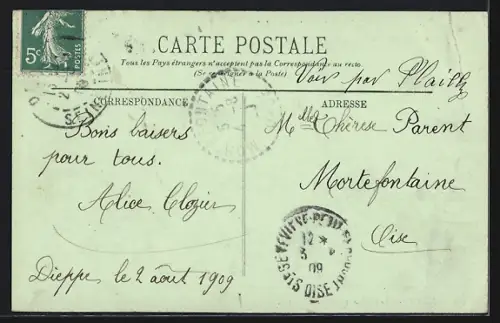 5c POSTES
CARTE POSTALE
Tous les Pays étrangers n'acceptent pas la Correspondance au recto.
(Se renseigner à la Poste)
Voir par Plailly
CORRESPONDANCE
Bons baisers
pour tous.
Alice Clozier
Dieppe le 2 août 1909
ADRESSE
Mlle Thérèse Parent
Mortefontaine
Oise
12 *
3
09
OISE